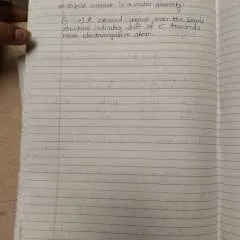 Dipole moment is a vector quantity
A crossed arrow over the Lewis
structure indicates shift of e⁻ towards
more electronegative atom.